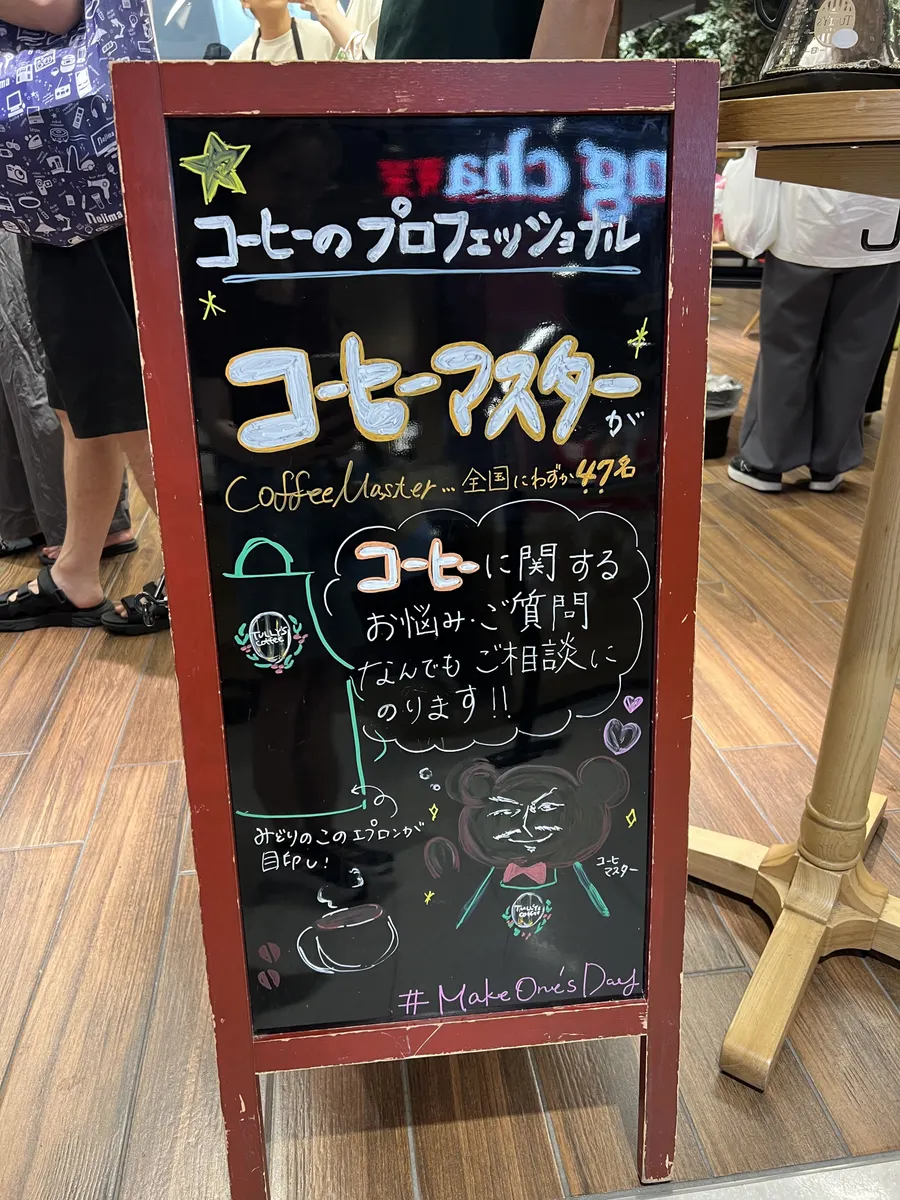 コーヒーのプロフェッショナル
コーヒーマスターが
CoffeeMaster... 全国にわずか47名
コーヒーに関する
お悩み・ご質問
なんでもご相談に
のります!!
TULLY'S
coffee
みどりのこのエプロンが
目印し!
コーヒー
マスター
TULLY'S
COFFEE
# Make One's Day
Nojima
ng cha